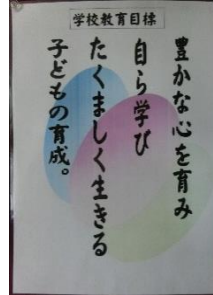 学校教育目標
豊かな心を育み
自ら学び
たくましく生きる
子どもの育成。